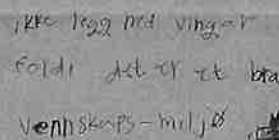 ikke legg ned vingar
fordi det er et bra
vennskaps-miljø